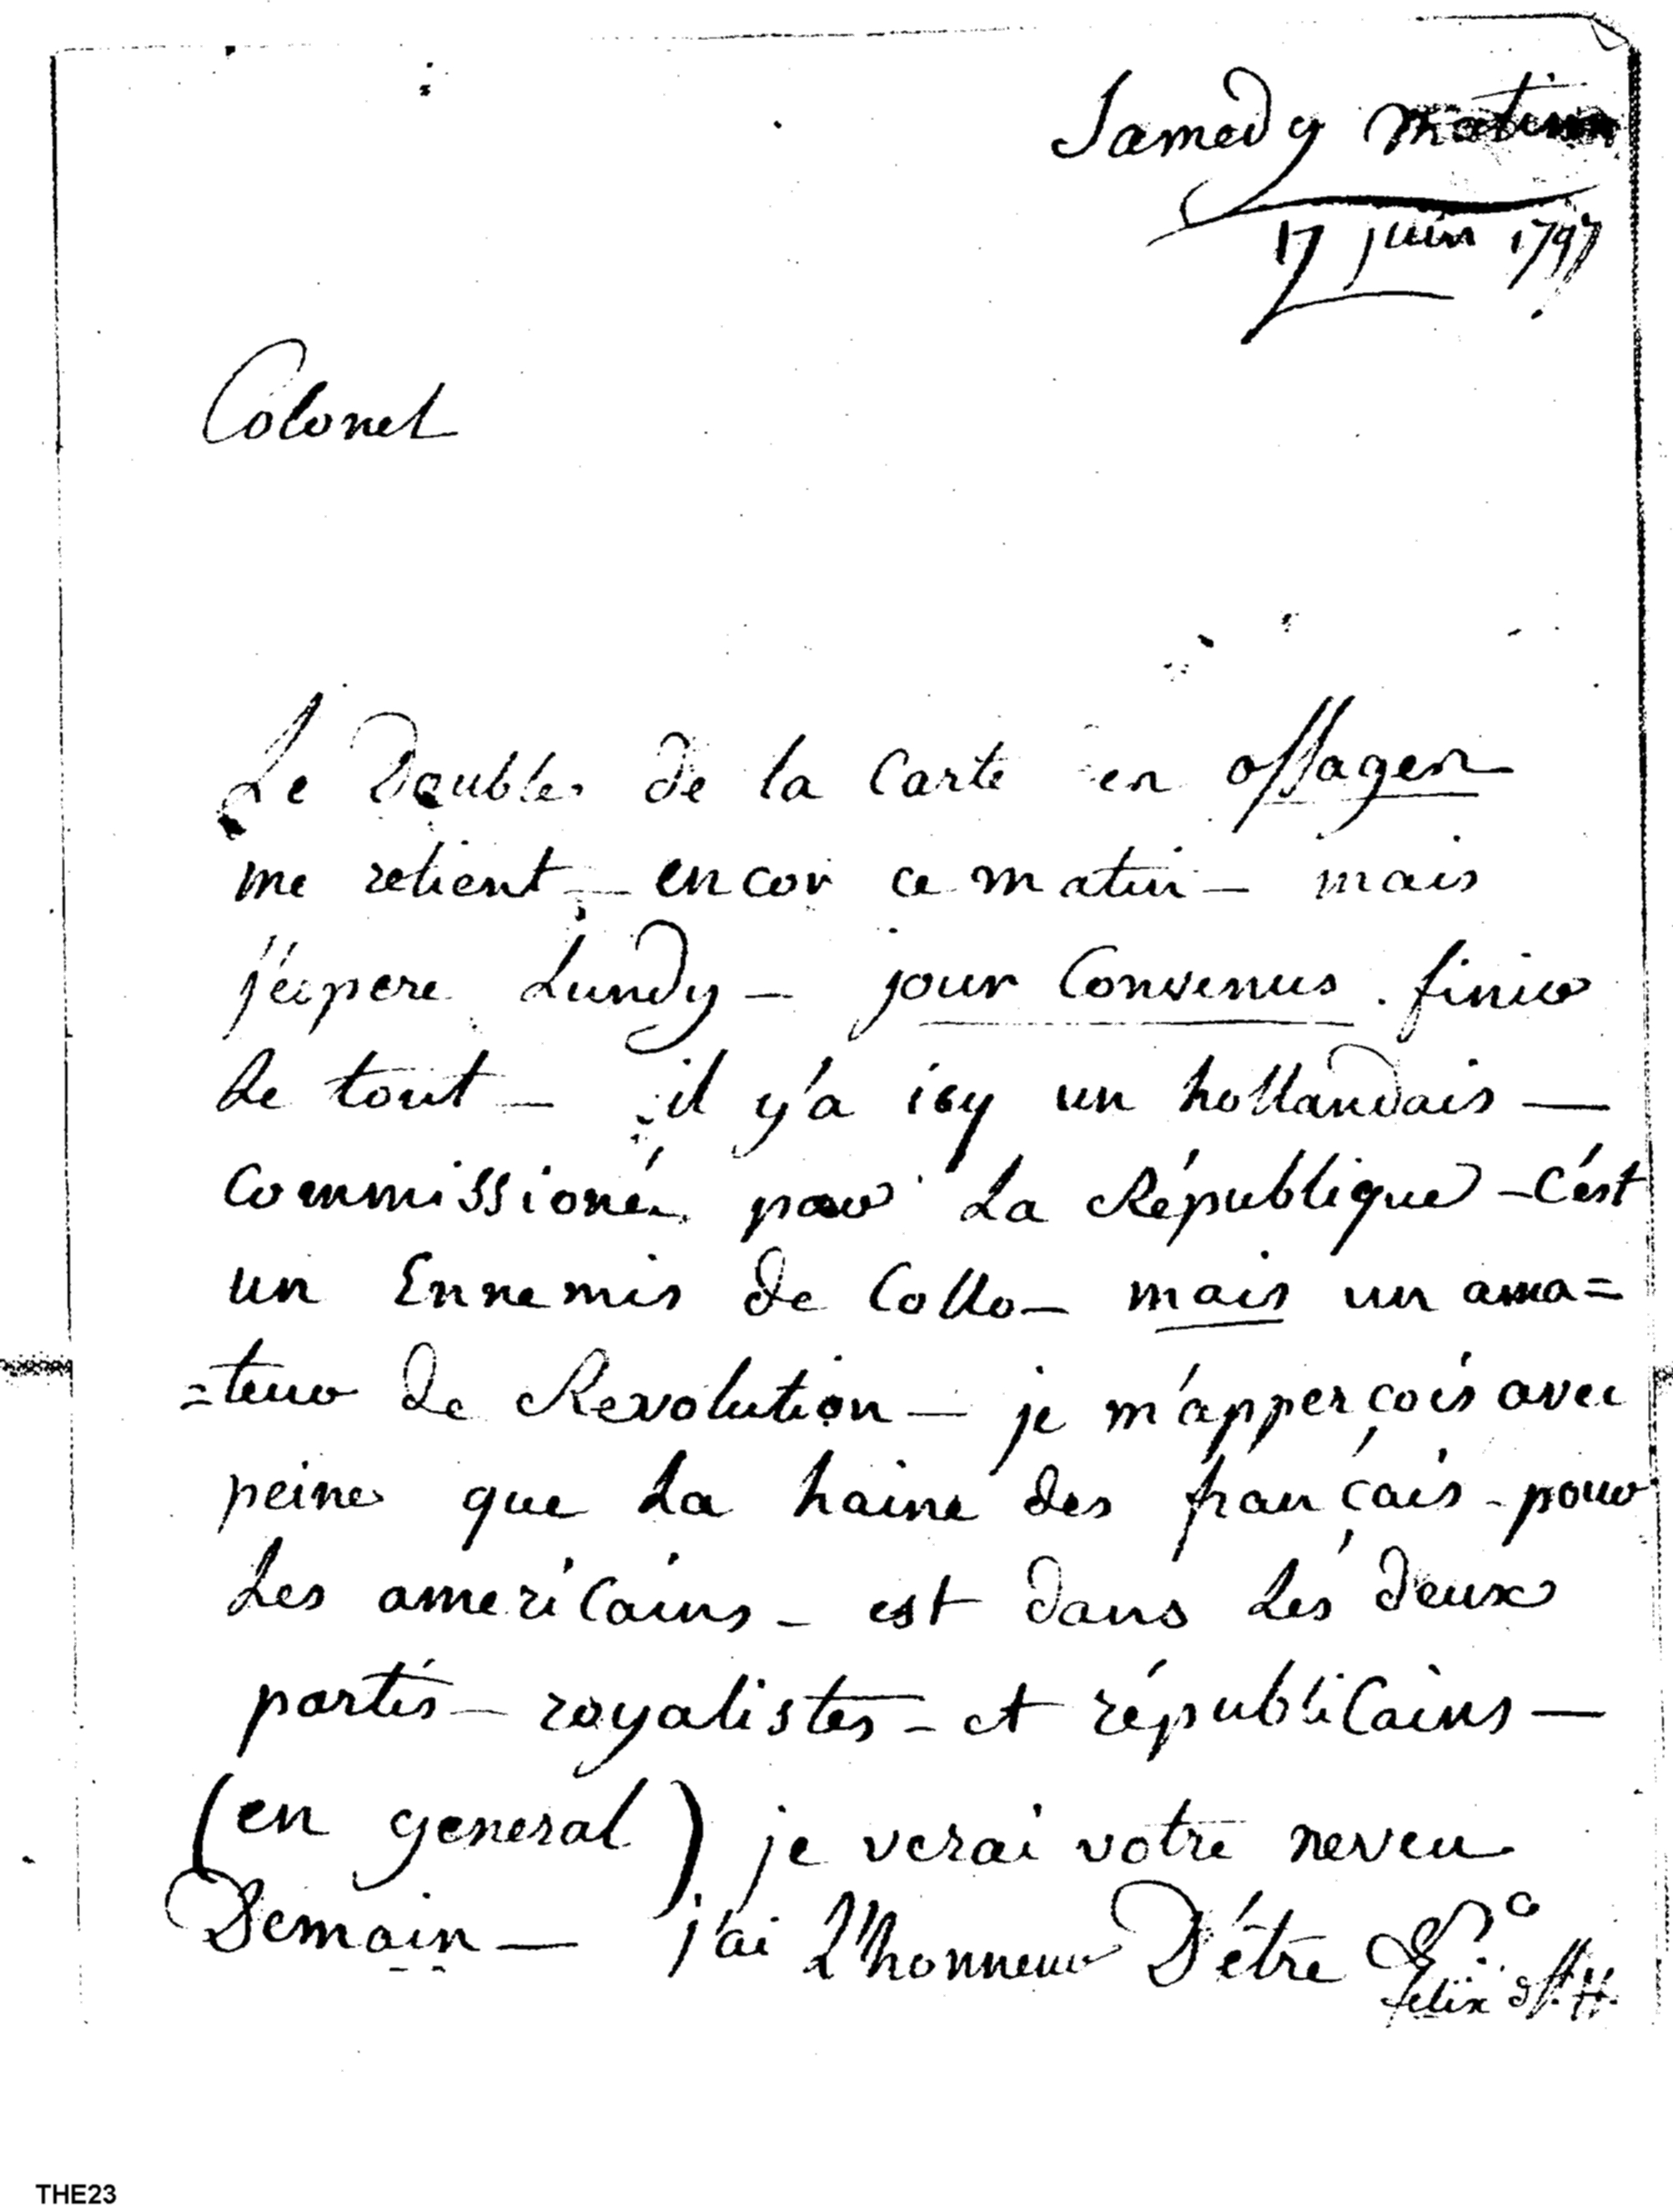 Samedy matin
17 juin 1797
Colonel
Le Double de la Carte en offagen
me retient — encor ce matin — mais
j'éspere Lundy — jour Convenus. finir
Le tout — il y'a icy un hollandais —
Commissioné pour La République — C'ést
un Ennemis de Collo — mais un ama=
=teur de Revolution — je m'apperçois avec
peine que La haine des français — pour
Les americains — est dans Les deux
partis — royalistes — et républicains —
(en general) je verai votre neveu
Demain — j'ai L'honneur D'étre &ca
felix St. H.
THE23